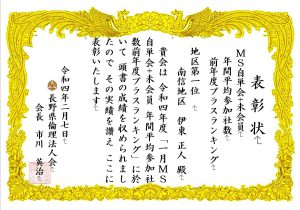 表彰状
MS自単会+未会員
年間平均参加社数
前年度プラスランキング
地区第一位
南信地区 伊東 正人 殿
貴会は 令和四年度「一月MS
自単会+未会員 年間平均参加社
数前年度プラスランキング」に於
いて 頭書の成績を収められまし
たので その実績を讃え ここに
表彰いたします
令和四年二月七日
長野県倫理法人会
会長 市川 英治